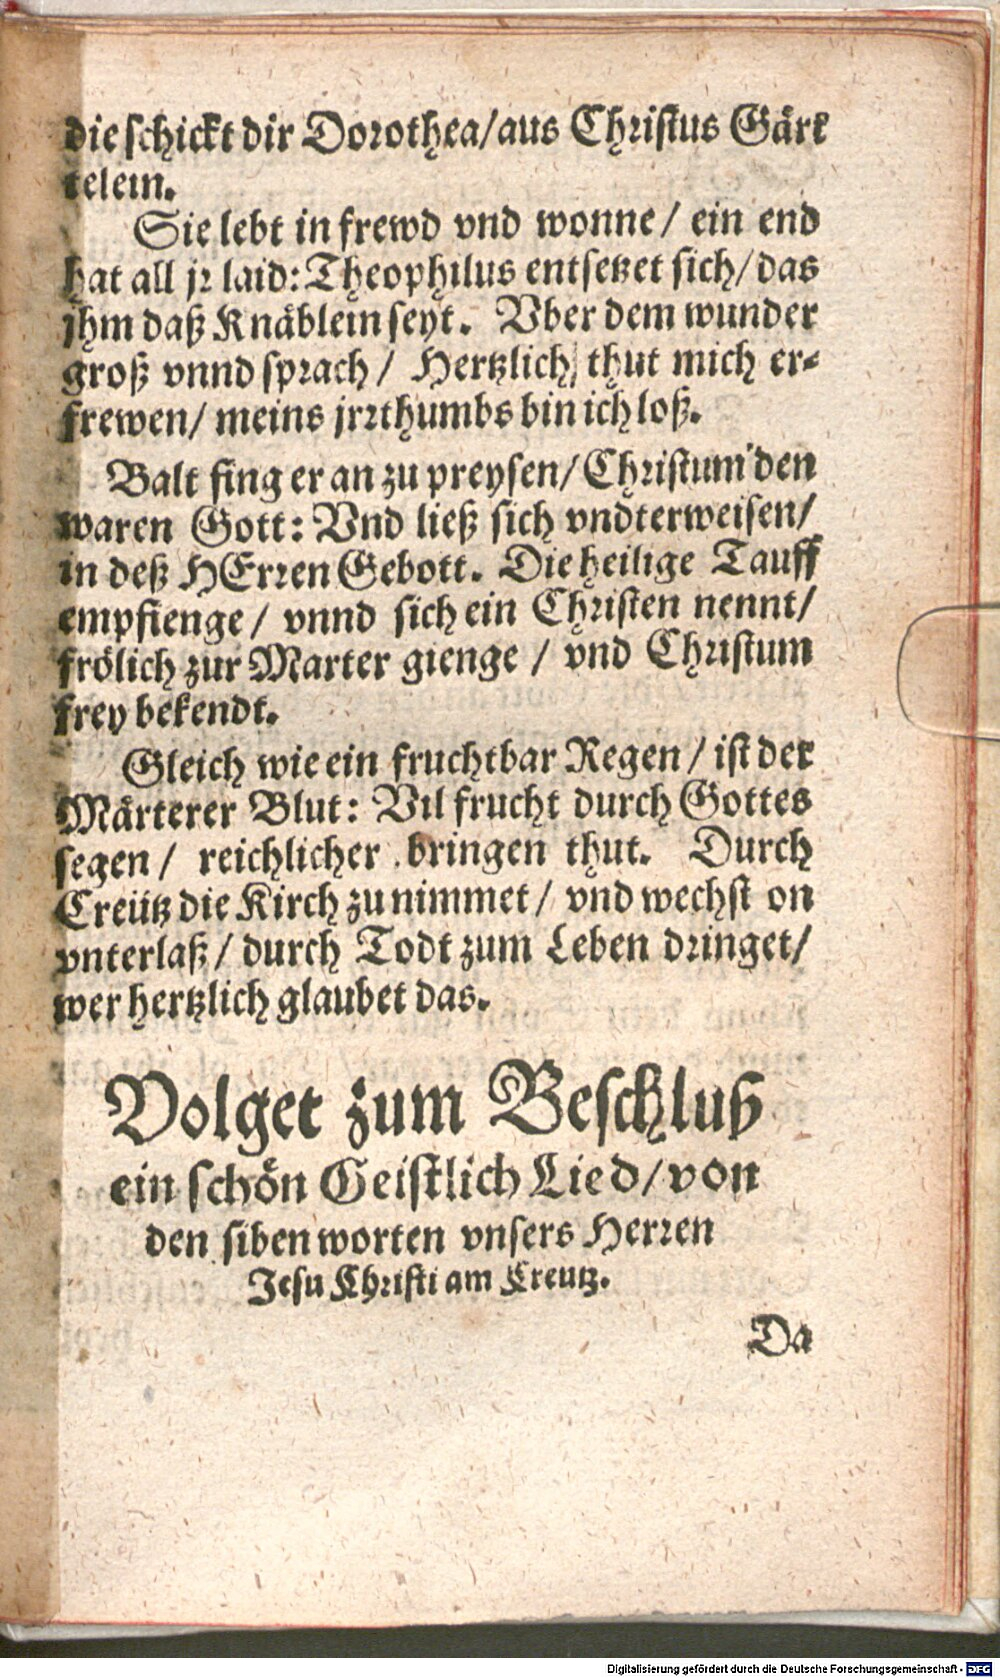 die schickt dir Dorothea/aus Christus Gärt
telein.
Sie lebt in frewd vnd wonne/ ein end
hat all jr laid: Theophilus entsetzet sich/das
jhm daß Knäblein seyt. Vber dem wunder
groß vnnd sprach/ Hertzlich thut mich er-
frewen/ meins jrrthumbs bin ich loß.
Balt fing er an zu preysen/Christum den
waren Gott: Vnd ließ sich vndterweisen/
in deß HErren Gebott. Die heilige Tauff
empfienge/ vnnd sich ein Christen nennt/
frölich zur Marter gienge/ vnd Christum
frey bekendt.
Gleich wie ein fruchtbar Regen/ ist der
Märterer Blut: Vil frucht durch Gottes
segen/ reichlicher bringen thut. Durch
Creütz die Kirch zunimmet/ vnd wechst on
vnterlaß/ durch Todt zum Leben dringet/
wer hertzlich glaubet das.
Volget zum Beschluß
ein schön Geistlich Lied/von
den siben worten vnsers Herren
Jesu Christi am Creutz.
Da
Digitalisierung gefördert durch die Deutsche Forschungsgemeinschaft - DFG